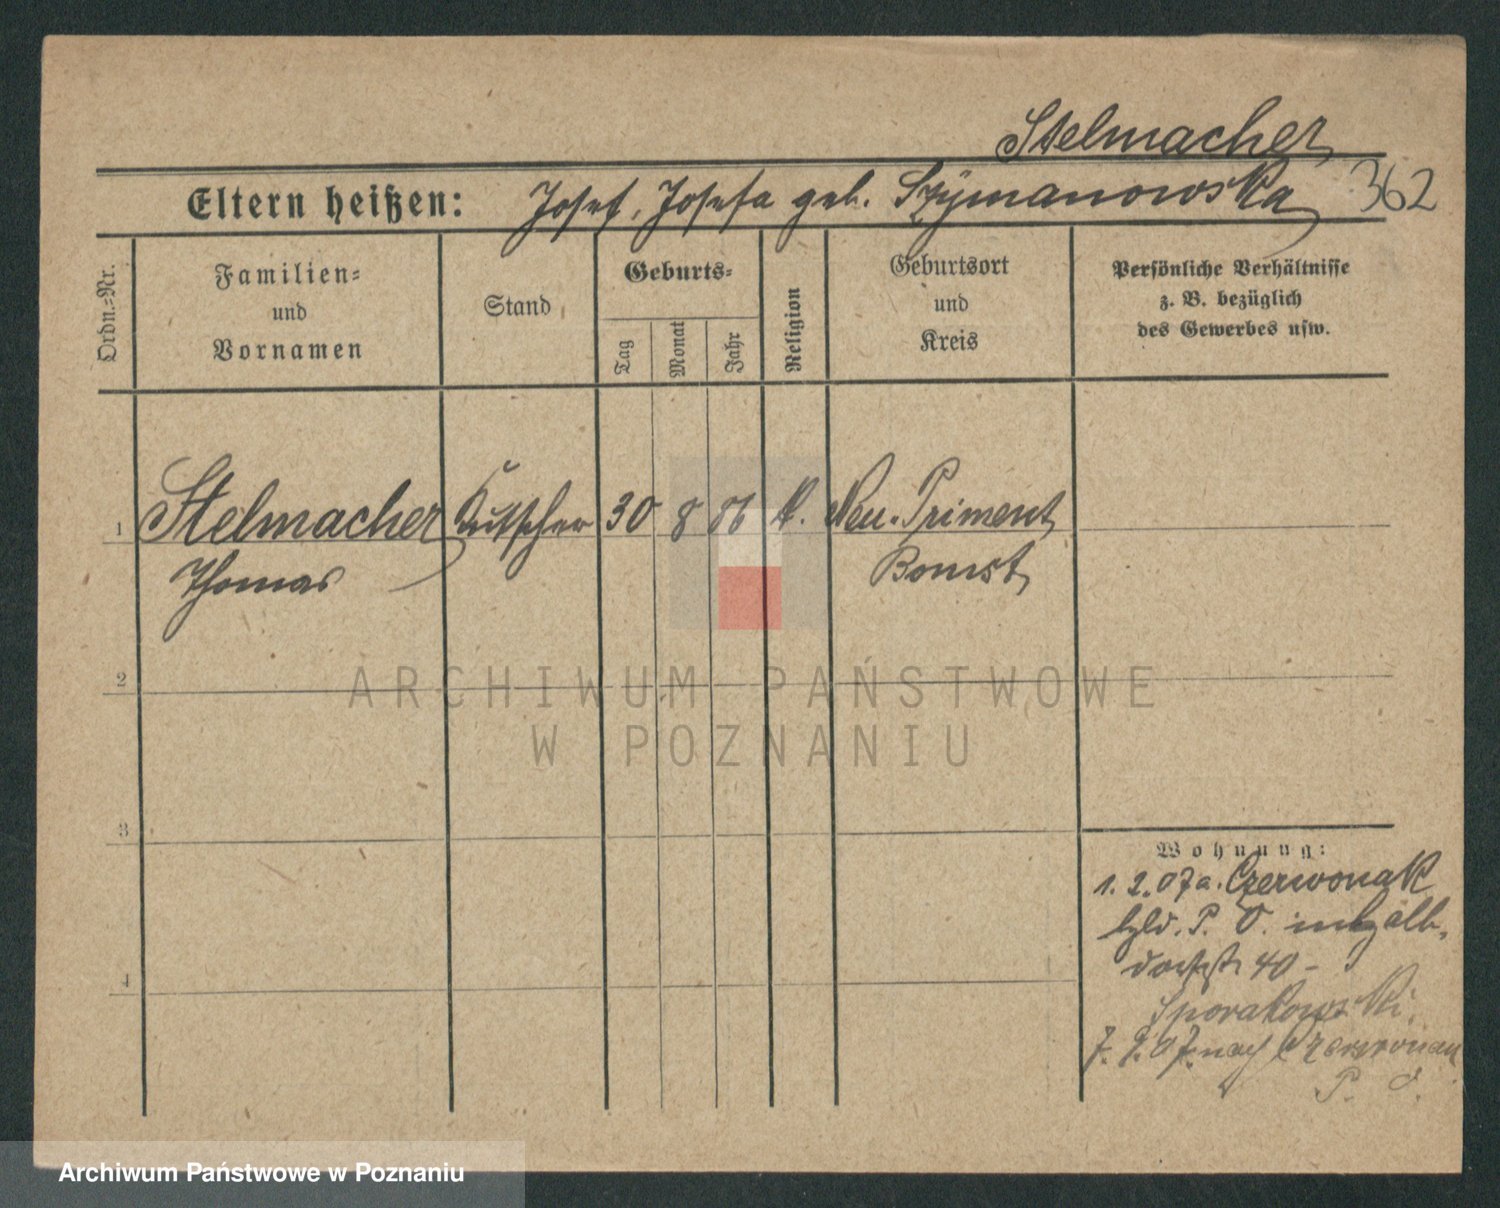 Stelmacher
Eltern heißen: Josef, Josefa geb. Szymanowska 362
Ordn.=Nr.
Familien=
und
Vornamen
Stand
Geburts=
Tag
Monat
Jahr
Religion
Geburtsort
und
Kreis
Persönliche Verhältnisse
z. B. bezüglich
des Gewerbes usw.
1 Stelmacher Kutscher 30 8 86 k. Neu-Priment
Thomas Bomst
2
3
4
Wohnung:
1. 2. 07 a. Czerwonak
P. O.
40 -
7. 9. 07. nach Czerwonak
P. O.
ARCHIWUM PAŃSTWOWE
W POZNANIU
Archiwum Państwowe w Poznaniu